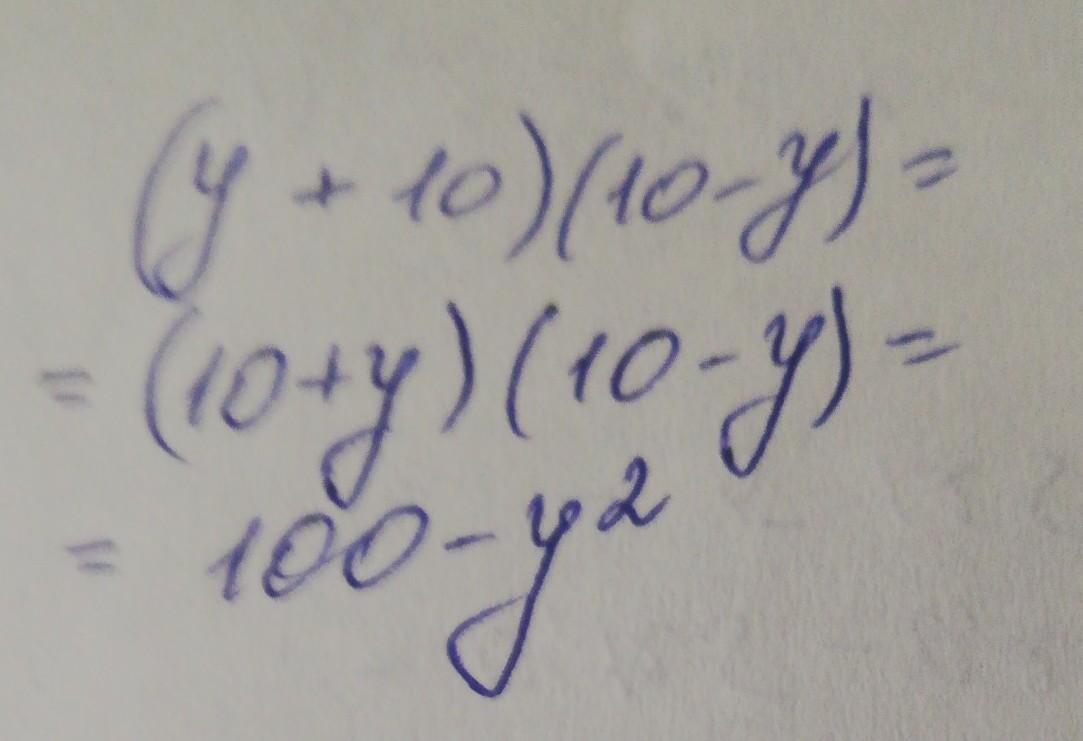 (y + 10)(10 - y) =
= (10 + y)(10 - y) =
= 100 - y²